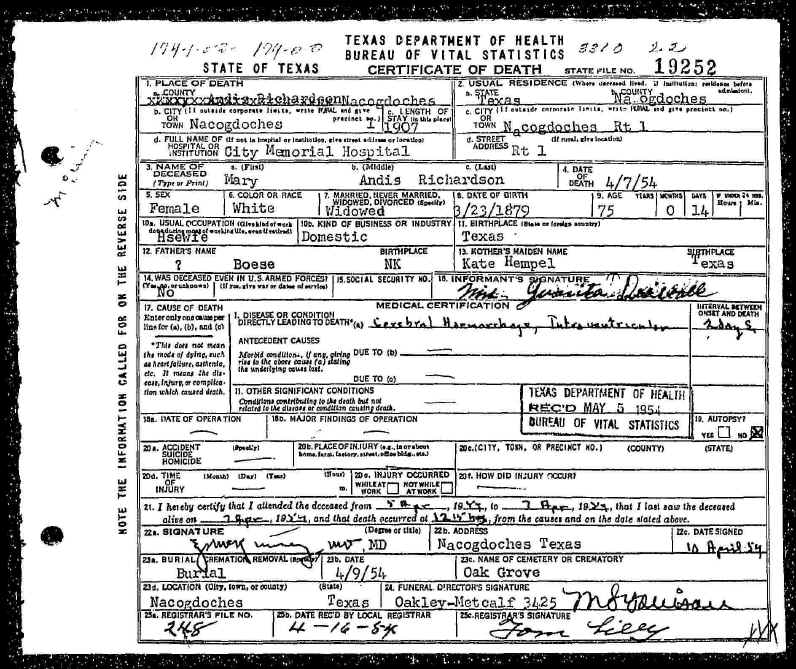 TEXAS DEPARTMENT OF HEALTH
BUREAU OF VITAL STATISTICS
STATE OF TEXAS CERTIFICATE OF DEATH STATE FILE NO. 19252
1. PLACE OF DEATH
a. COUNTY Nacogdoches
2. USUAL RESIDENCE (Where deceased lived, if institution: residence before admission).
a. STATE Texas b. COUNTY Na ogdoches
b. CITY (If outside corporate limits, write RURAL and give precinct no.)
OR TOWN Nacogdoches 1
c. LENGTH OF STAY (in this place) 1907
c. CITY (If outside corporate limits, write RURAL and give precinct no.)
OR TOWN Nacogdoches Rt 1
d. FULL NAME OF (If not in hospital or institution, give street address or location)
HOSPITAL OR INSTITUTION City Memorial Hospital
d. STREET ADDRESS (If rural, give location) Rt 1
3. NAME OF DECEASED (Type or Print) a. (First) Mary b. (Middle) Andis c. (Last) Richardson
4. DATE OF DEATH 4/7/54
5. SEX Female
6. COLOR OR RACE White
7. MARRIED, NEVER MARRIED, WIDOWED, DIVORCED (Specify) Widowed
8. DATE OF BIRTH 3/23/1879
9. AGE YEARS 75 MONTHS 0 DAYS 14 IF UNDER 24 HRS. Hours Min.
10a. USUAL OCCUPATION (Give kind of work done during most of working life, even if retired) Hsewife
10b. KIND OF BUSINESS OR INDUSTRY Domestic
11. BIRTHPLACE (State or foreign country) Texas
12. FATHER'S NAME ? Boese BIRTHPLACE NK
13. MOTHER'S MAIDEN NAME Kate Hempel BIRTHPLACE Texas
14. WAS DECEASED EVER IN U.S. ARMED FORCES? (Yes, no, or unknown) (If yes, give war or dates of service) No
15. SOCIAL SECURITY NO.
16. INFORMANT'S SIGNATURE
17. CAUSE OF DEATH
Enter only one cause per line for (a), (b), and (c)
*This does not mean the mode of dying, such as heart failure, asthenia, etc. It means the disease, injury, or complication which caused death.
MEDICAL CERTIFICATION
INTERVAL BETWEEN ONSET AND DEATH
I. DISEASE OR CONDITION DIRECTLY LEADING TO DEATH*(a) Cerebral Haemorrhage, Intraventricular 2 days
ANTECEDENT CAUSES
Morbid conditions, if any, giving rise to the above cause (a) stating the underlying cause last.
DUE TO (b)
DUE TO (c)
II. OTHER SIGNIFICANT CONDITIONS
Conditions contributing to the death but not related to the disease or condition causing death.
TEXAS DEPARTMENT OF HEALTH
REC'D MAY 5 1954
BUREAU OF VITAL STATISTICS
18a. DATE OF OPERATION
18b. MAJOR FINDINGS OF OPERATION
19. AUTOPSY? YES NO
20a. ACCIDENT SUICIDE HOMICIDE (Specify)
20b. PLACE OF INJURY (e.g., in or about home, farm, factory, street, office bldg., etc.)
20c. (CITY, TOWN, OR PRECINCT NO.) (COUNTY) (STATE)
20d. TIME OF INJURY (Month) (Day) (Year) (Hour) m.
20e. INJURY OCCURRED WHILE AT WORK NOT WHILE AT WORK
20f. HOW DID INJURY OCCUR?
21. I hereby certify that I attended the deceased from 5 Apr, 1954, to 7 Apr, 1954, that I last saw the deceased
alive on 7 Apr, 1954, and that death occurred at m., from the causes and on the date stated above.
22a. SIGNATURE (Degree or title) MD
22b. ADDRESS Nacogdoches Texas
22c. DATE SIGNED 10 April 54
23a. BURIAL, CREMATION, REMOVAL (Specify) Burial
23b. DATE 4/9/54
23c. NAME OF CEMETERY OR CREMATORY Oak Grove
23d. LOCATION (City, town, or county) (State) Nacogdoches Texas
24. FUNERAL DIRECTOR'S SIGNATURE Oakley-Metcalf 3425
25a. REGISTRAR'S FILE NO. 248
25b. DATE REC'D BY LOCAL REGISTRAR 4-16-54
25c. REGISTRAR'S SIGNATURE Tom Lilly
NOTE THE INFORMATION CALLED FOR ON THE REVERSE SIDE